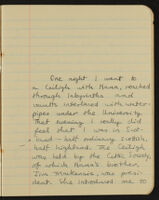 One night I went to
a Ceilidh with Nana, reached
through labyrinths and
vaults interlaced with water-
pipes under the University.
That evening I really did
feel that I was in Scot-
land — half ordinary Scottish,
half highland. The Ceilidh
was held by the Celtic Society,
of which Nana's brother,
Jim MacKenzie, was presi-
dent. She introduced me to